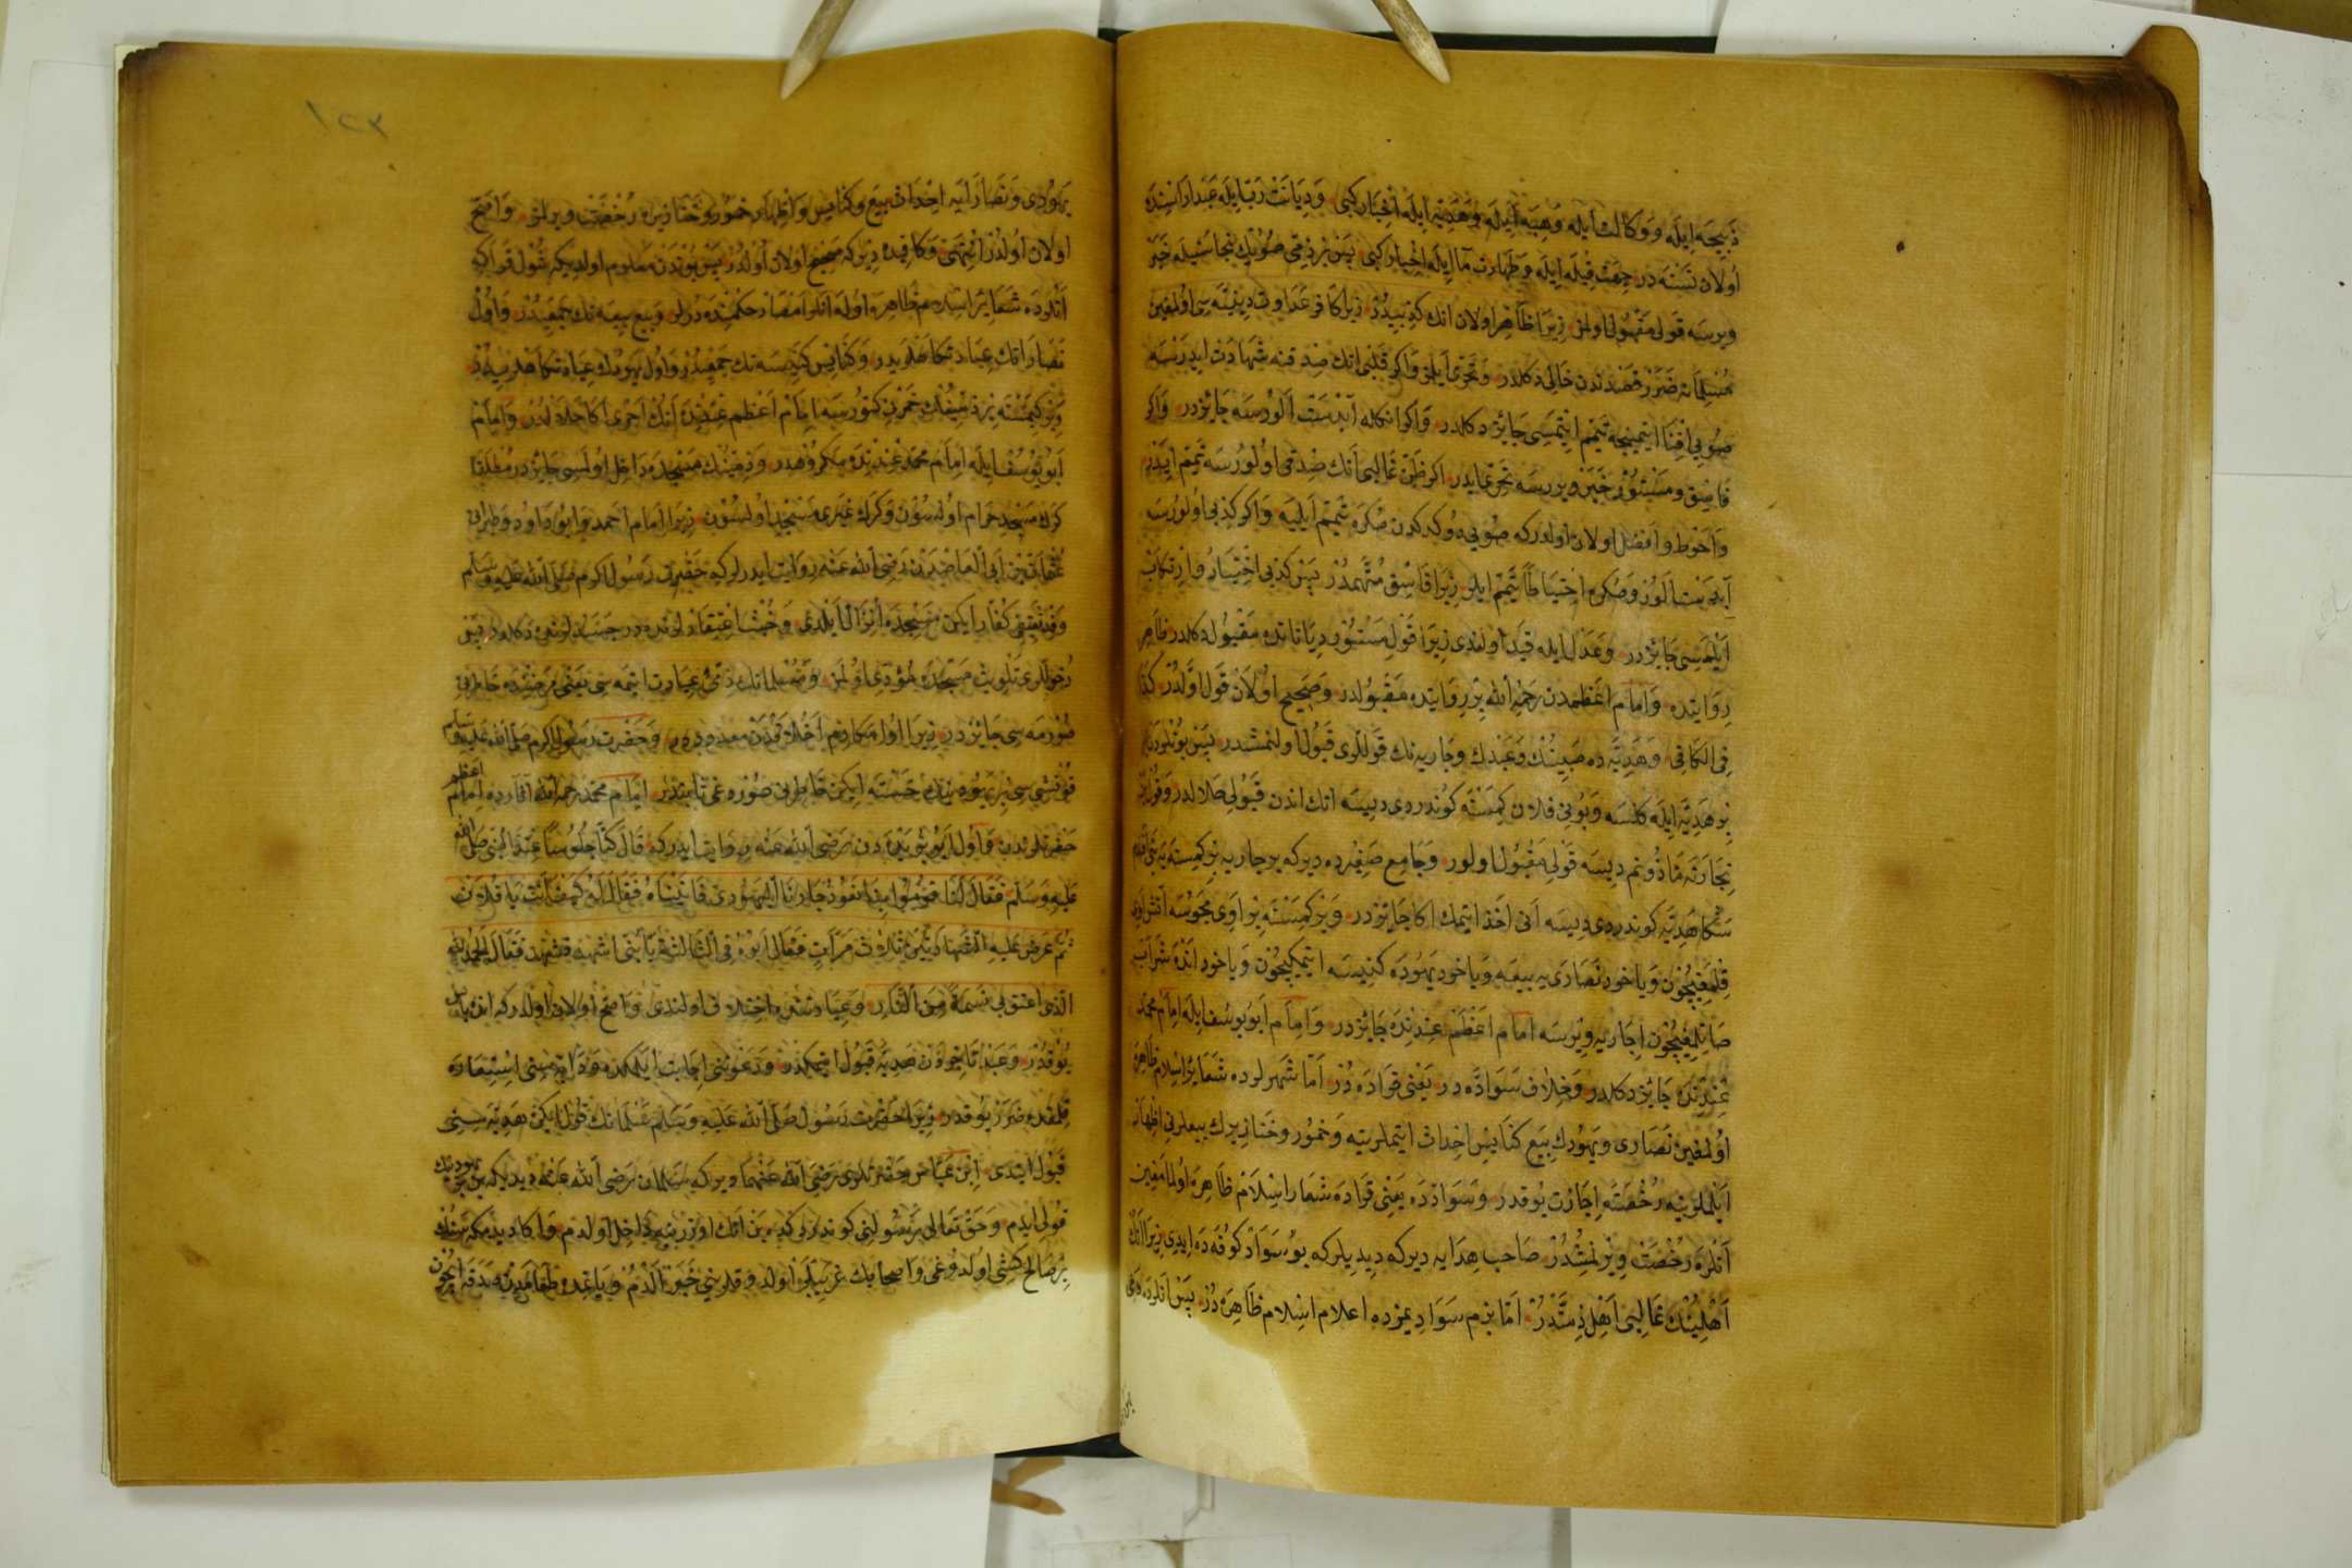 ذبیحه ایله و وكالت ایله و هبه ایله و هدیه ایله اخبار كبی و دیانت رب ایله عبد اراسنده
اولان نسنه در جهت قبله ایله و طهارت ما ایله اخبار كبی پس بر ذمی صویك نجاستیله خبر
ویرسه قولی مقبول اولمز زیرا ظاهر اولان انك كذبیدر زیرا كافر عداوت دینیه سی اولمغین
مسلمانه ضرر قصدندن خالی دكلدر و تحری ایلر و اكر قلبی انك صدقنه شهادت ایدرسه
صویی افنا ایتمینجه تیمم ایتمسی جایز دكلدر و اكر انكله آبدست الورسه جایزدر و اكر
فاسق و مستور خبر ویررسه تحری ایدر اكر ظن غالبی انك صدقی اولورسه تیمم ایدر
و احوط و افضل اولان اولدر كه صویی دوكدكدن صكره تیمم ایلیه و اكر كذبی اولورسه
آبدست الور و صكره احتیاطا تیمم ایلر زیرا فاسق متهمدر پس كذبی اختیار و ارتكاب
ایلمسی جایزدر و عدل ایله قید اولندی زیرا قول مستور دیاناتده مقبول دكلدر ظاهر
روایتده و امام اعظمدن رحمه الله بر روایتده مقبولدر و صحیح اولان قول اولدر كذا
فی الكافی و هدیه ده صبینك و عبدك و جاریه نك قوللری قبول اولنمشدر پس بونلردن
بر هدیه ایله كلسه و بونی فلان كمسنه كوندردی دیسه انك اندن قبولی حلالدر و قولی
تجارته مأذونم دیسه قولی مقبول اولور و جامع صغیرده دیر كه بر جاریه بر كمسنه یه بنی افندم
سكا هدیه كوندردی دیسه انی اخذ ایتمك اكا جایزدر و بر كمسنه بر اوی مجوسه آتش اوی
قلمغیچون و یاخود نصارایه بیعه و یاخود یهوده كنیسه ایتمكیچون و یاخود انده شراب
صاتلمغیچون اجاریه ویرسه امام اعظم عندنده جایزدر و امام ابو یوسف ایله امام محمد
عندنده جایز دكلدر و خلاف سواده در یعنی قراده در اما شهرلرده شعایر اسلام ظاهره
اولمغین نصاری و یهودك بیع كنایس احداث ایتملرینه و خمور و خنازیرك بیعلرنی اظهار
ایلملرینه رخصته اجازت یوقدر و سوادده یعنی قراده شعار اسلام ظاهره اولمامغین
آنلره رخصت ویرلمشدر صاحب هدایه دیر كه دیدیلر كه بو سواد كوفه ده ایدی زیرا انك
اهلینك غالبی اهل ذمتدر اما بزم سوادیمزده اعلام اسلام ظاهره در پس انلرده دخی
یهودی و نصارایه احداث بیع و كنایس و اظهار خمور و خنازیره رخصت ویرلمز و اصح
اولان اولدر انتهی و كافیده دیر كه صحیح اولان اولدر پس بوندن معلوم اولدیكه شول قرا كه
انلرده شعایر اسلام ظاهره اوله انلر امصار حكمنده درلر و بیع بیعه نك جمعیدر و اول
نصارانك عبادتكاهلریدر و كنایس كنیسه نك جمعیدر و اول یهودك عبادتكاهلریدر
و بر كیمسنه بر ذمینك خمرن كتورسه امام اعظم عندنده انك اجری اكا حلالدر و امام
ابو یوسف ایله امام محمد عندنده مكروهدر و ذمینك مسجده داخل اولسی جایزدر مطلقا
كرك مسجد حرام اولسون و كرك غیری مسجد اولسون زیرا امام احمد و ابو داود و طبرانی
عثمان بن ابی العاصدن رضی الله عنه روایت ایدرلر كه حضرت رسول اكرم صلی الله علیه وسلم
وفد ثقیفی كفار ایكن مسجده انزال ایلدی و خبث اعتقادلرنده در جسدلرنده دكلدر پس
دخوللری تلویث مسجده مؤدی اولمز و مسلمانك ذمی عیادت ایتمه سی یعنی مرضنده خاطرنی
صورمه سی جایزدر زیرا اول مكارم اخلاقدن معدوددر و حضرت رسول اكرم صلی الله علیه وسلم
قوكشی سی بر یهودینك خسته ایكن خاطرنی صوردوغی ثابتدر امام محمد رحمه الله آثارده امام اعظم
حضرتلرندن و اول ابو بریده دن رضی الله عنه روایت ایدر كه قال كنا جلوسا عند النبی صلی الله
علیه وسلم فقال لنا قوموا بنا نعود جارنا الیهودی فاتیناه فقال له كیف انت یا فلان
ثم عرض علیه الشهادتین ثلاث مرات فقال ابوه فی الثالثة یا بنی اشهد فشهد فقال الحمد لله
الذی اعتق بی نسمة من النار و عیادتنده اختلاف اولندی و اصح اولان اولدر كه انده باس
یوقدر و عبد تاجردن هدیه قبول ایتمكده و دعوتنی اجابت ایلمكده و دابه سنی استعاره
قلمقده ضرر یوقدر زیرا حضرت رسول صلی الله علیه وسلم سلمانك قول ایكن هدیه سنی
قبول ایتدی ابن عباس حضرتلری رضی الله عنهما دیر كه سلمان رضی الله عنه دیدیكه بن بر یهودینك
قولی ایدم و حق تعالی رسولنی كوندردكده بن انك اوزرینه داخل اولدم و اكا دیدمكه سنك
بر صالح كشی اولدوغی و اصحابك غریبلر اولدوقلرینی خبر آلدم و یانمده طعامدن صدقه ایچون